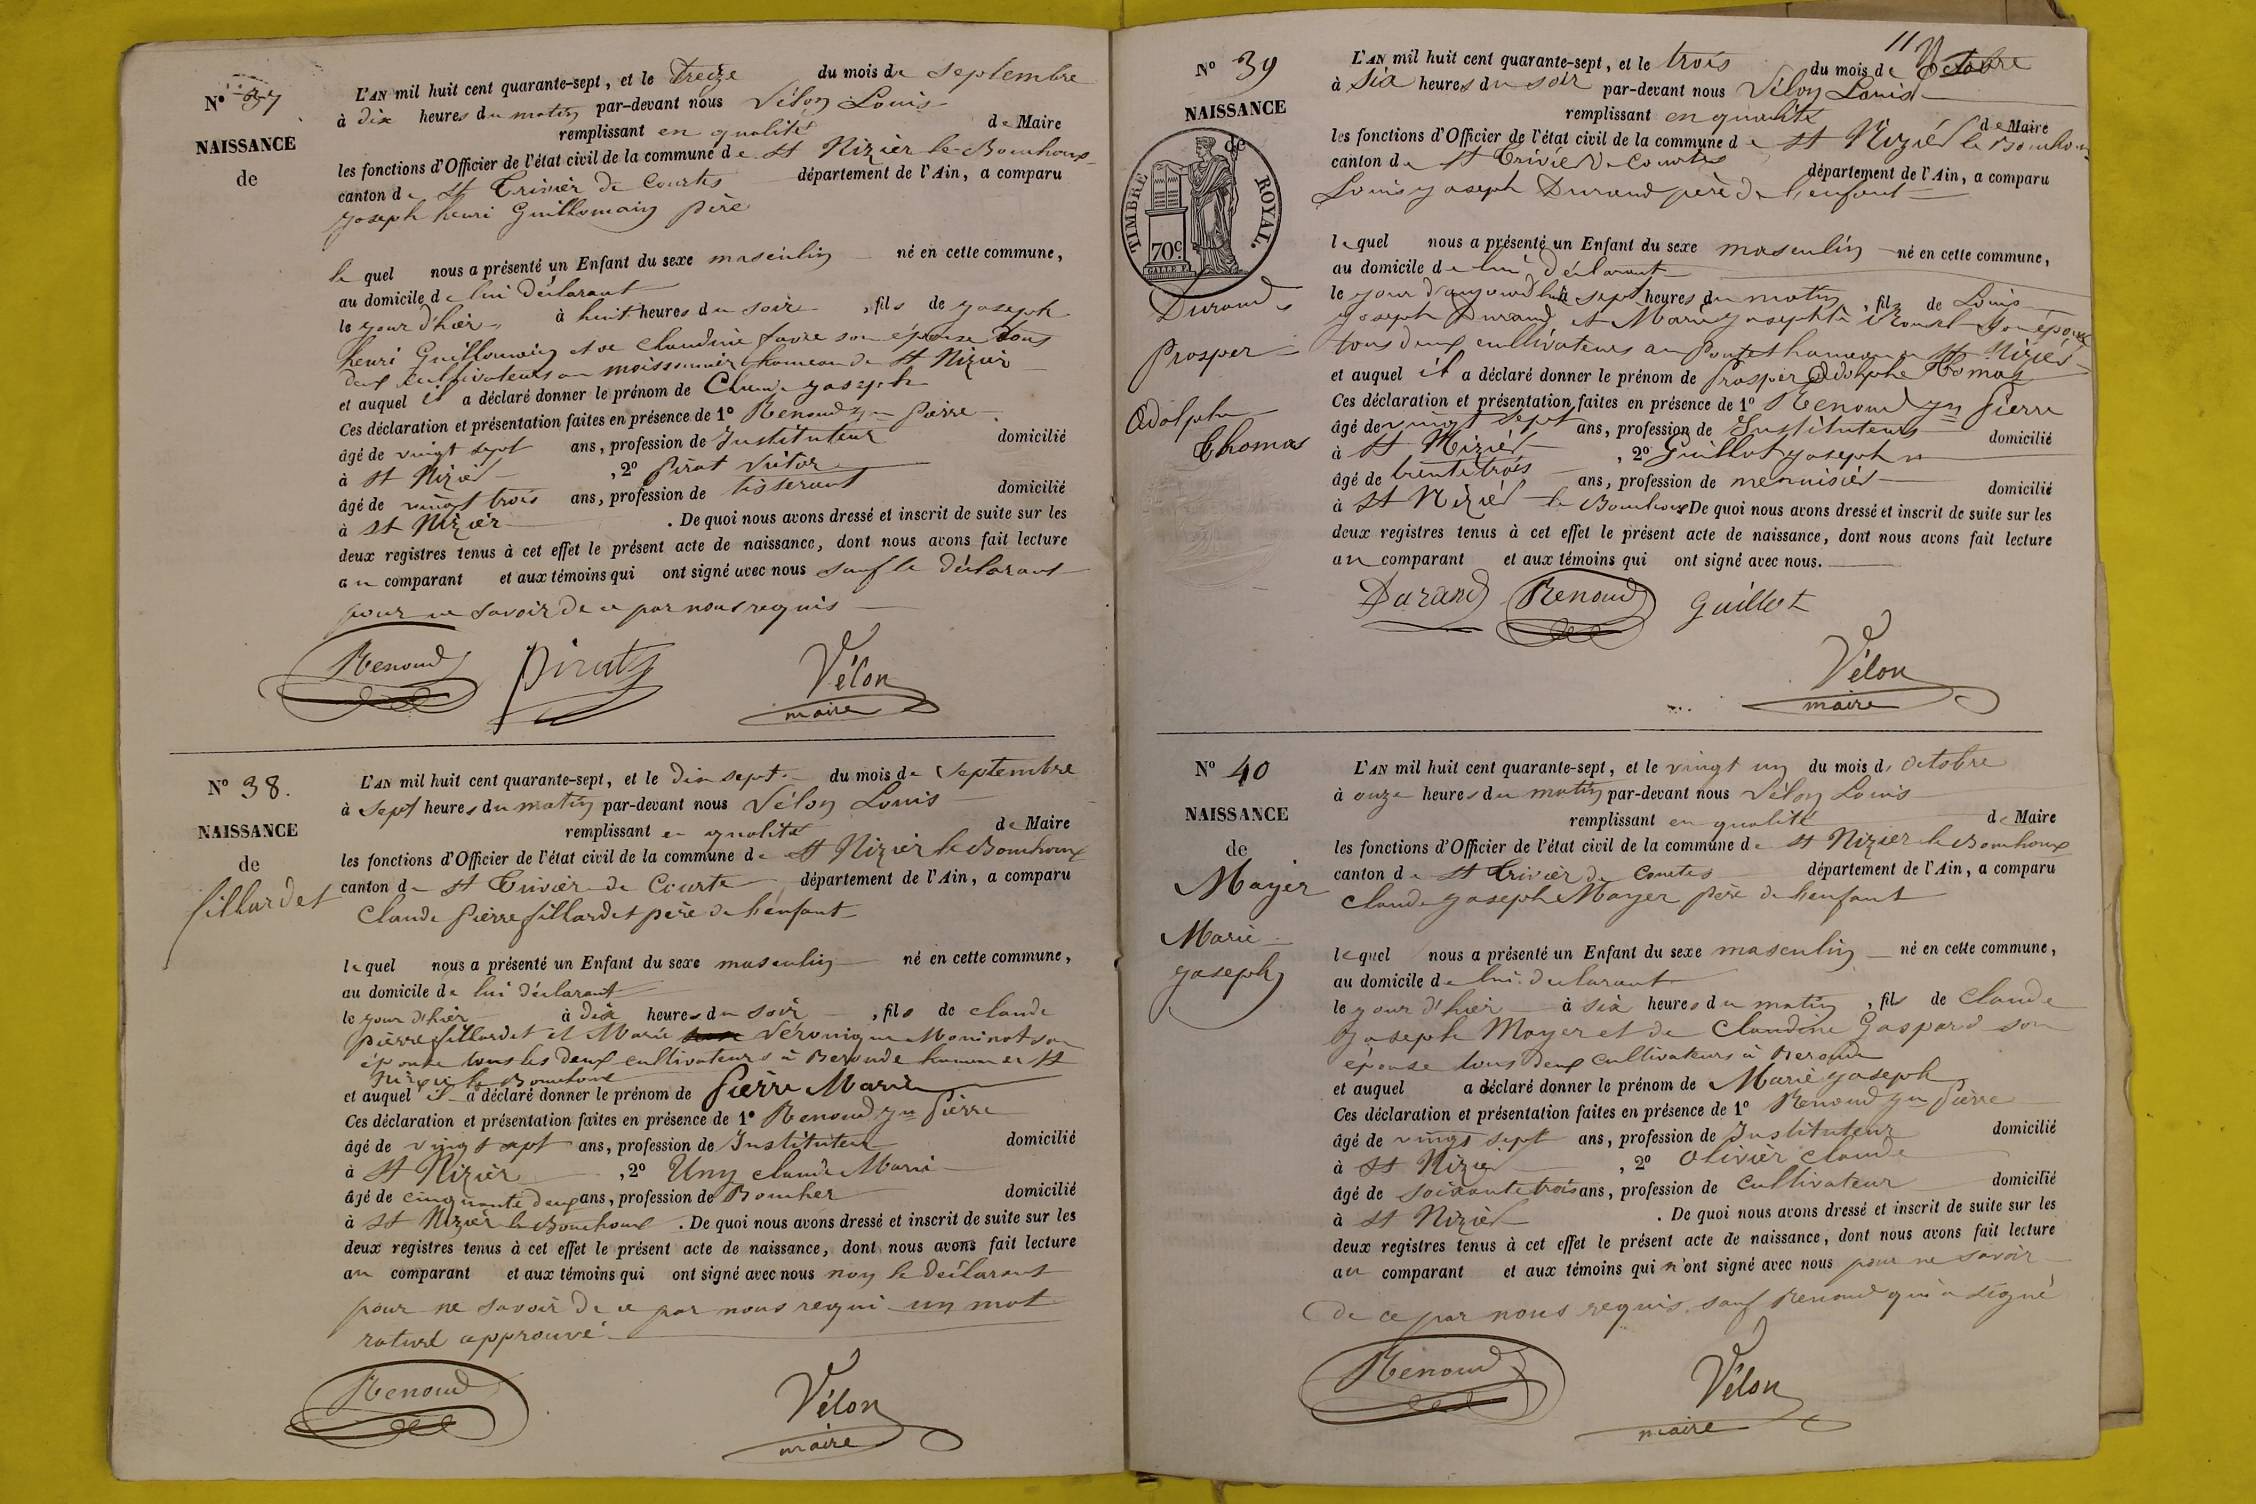 N° 37
NAISSANCE
de
L'AN mil huit cent quarante-sept, et le treize du mois de Septembre
à dix heures du matin par-devant nous Vélon Louis
remplissant en qualité de Maire
les fonctions d'Officier de l'état civil de la commune de St Nizier le Bouchoux
canton de St Trivier de Courtes département de l'Ain, a comparu
Joseph henri Guillomain père
le quel nous a présenté un Enfant du sexe masculin né en cette commune,
au domicile de lui déclarant
le jour d'hier à huit heures du soir, fils de Joseph
henri Guillomain et de Claudine favre son épouse tous
deux cultivateurs au hameau de St Nizier
et auquel il a déclaré donner le prénom de Claude Joseph
Ces déclaration et présentation faites en présence de 1° Renoud jn Pierre
âgé de vingt sept ans, profession de Instituteur domicilié
à St Nizier, 2° Pirat Victor
âgé de vingt trois ans, profession de tisserant domicilié
à St Nizier. De quoi nous avons dressé et inscrit de suite sur les
deux registres tenus à cet effet le présent acte de naissance, dont nous avons fait lecture
au comparant et aux témoins qui ont signé avec nous sauf le déclarant
pour ne savoir de ce par nous requis
Renoud Pirat Vélon
maire
N° 38.
NAISSANCE
de
fillardet
L'AN mil huit cent quarante-sept, et le dix sept du mois de Septembre
à sept heures du matin par-devant nous Vélon Louis
remplissant en qualité de Maire
les fonctions d'Officier de l'état civil de la commune de St Nizier le Bouchoux
canton de St Trivier de Courte département de l'Ain, a comparu
Claude Pierre fillardet père de l'enfant
le quel nous a présenté un Enfant du sexe masculin né en cette commune,
au domicile de lui déclarant
le jour d'hier à dix heures du soir, fils de Claude
Pierre fillardet et Marie Véronique Moninot son
épouse tous les deux cultivateurs à Beronde hameau de St
Nizier le Bouchoux
et auquel il a déclaré donner le prénom de Pierre Marie
Ces déclaration et présentation faites en présence de 1° Renoud jn Pierre
âgé de vingt sept ans, profession de Instituteur domicilié
à St Nizier, 2° Uny Claude Marie
âgé de cinquante deux ans, profession de Boucher domicilié
à St Nizier le Bouchoux. De quoi nous avons dressé et inscrit de suite sur les
deux registres tenus à cet effet le présent acte de naissance, dont nous avons fait lecture
au comparant et aux témoins qui ont signé avec nous non le déclarant
pour ne savoir de ce par nous requi un mot
raturé approuvé
Renoud Vélon
maire
11
N° 39
NAISSANCE
de
TIMBRE ROYAL.
70c.
Durand
Prosper
Adolphe
Thomas
L'AN mil huit cent quarante-sept, et le trois du mois de Octobre
à six heures du soir par-devant nous Vélon Louis
remplissant en qualité de Maire
les fonctions d'Officier de l'état civil de la commune de St Nizier le Bouchoux
canton de St Trivier de Courtes département de l'Ain, a comparu
Louis Joseph Durand père de l'enfant
lequel nous a présenté un Enfant du sexe masculin né en cette commune,
au domicile de lui déclarant
le jour d'aujourd'hui à sept heures du matin, fils de Louis
Joseph Durand et Marie Josephte son épouse
tous deux cultivateurs au hameau de St Nizier
et auquel il a déclaré donner le prénom de Prosper Adolphe Thomas
Ces déclaration et présentation faites en présence de 1° Renoud jn Pierre
âgé de vingt sept ans, profession de Instituteur domicilié
à St Nizier, 2° Guillot Joseph
âgé de trente trois ans, profession de menuisier domicilié
à St Nizier le Bouchoux De quoi nous avons dressé et inscrit de suite sur les
deux registres tenus à cet effet le présent acte de naissance, dont nous avons fait lecture
au comparant et aux témoins qui ont signé avec nous.
Durand Renoud Guillot
Vélon
maire
N° 40
NAISSANCE
de
Mayer
Marie
Joseph
L'AN mil huit cent quarante-sept, et le vingt un du mois de Octobre
à onze heures du matin par-devant nous Vélon Louis
remplissant en qualité de Maire
les fonctions d'Officier de l'état civil de la commune de St Nizier le Bouchoux
canton de St Trivier de Courtes département de l'Ain, a comparu
Claude Joseph Mayer père de l'enfant
lequel nous a présenté un Enfant du sexe masculin né en cette commune,
au domicile de lui declarant
le jour d'hier à six heures du matin, fils de Claude
Joseph Mayer et de Claudine Gaspard son
épouse tous deux cultivateurs à Beronde
et auquel a déclaré donner le prénom de Marie Joseph
Ces déclaration et présentation faites en présence de 1° Renoud jn Pierre
âgé de vingt sept ans, profession de Instituteur domicilié
à St Nizier, 2° Olivier Claude
âgé de soixante trois ans, profession de Cultivateur domicilié
à St Nizier. De quoi nous avons dressé et inscrit de suite sur les
deux registres tenus à cet effet le présent acte de naissance, dont nous avons fait lecture
au comparant et aux témoins qui n'ont signé avec nous pour ne savoir
de ce par nous requis sauf Renoud qui a signé
Renoud Vélon
maire